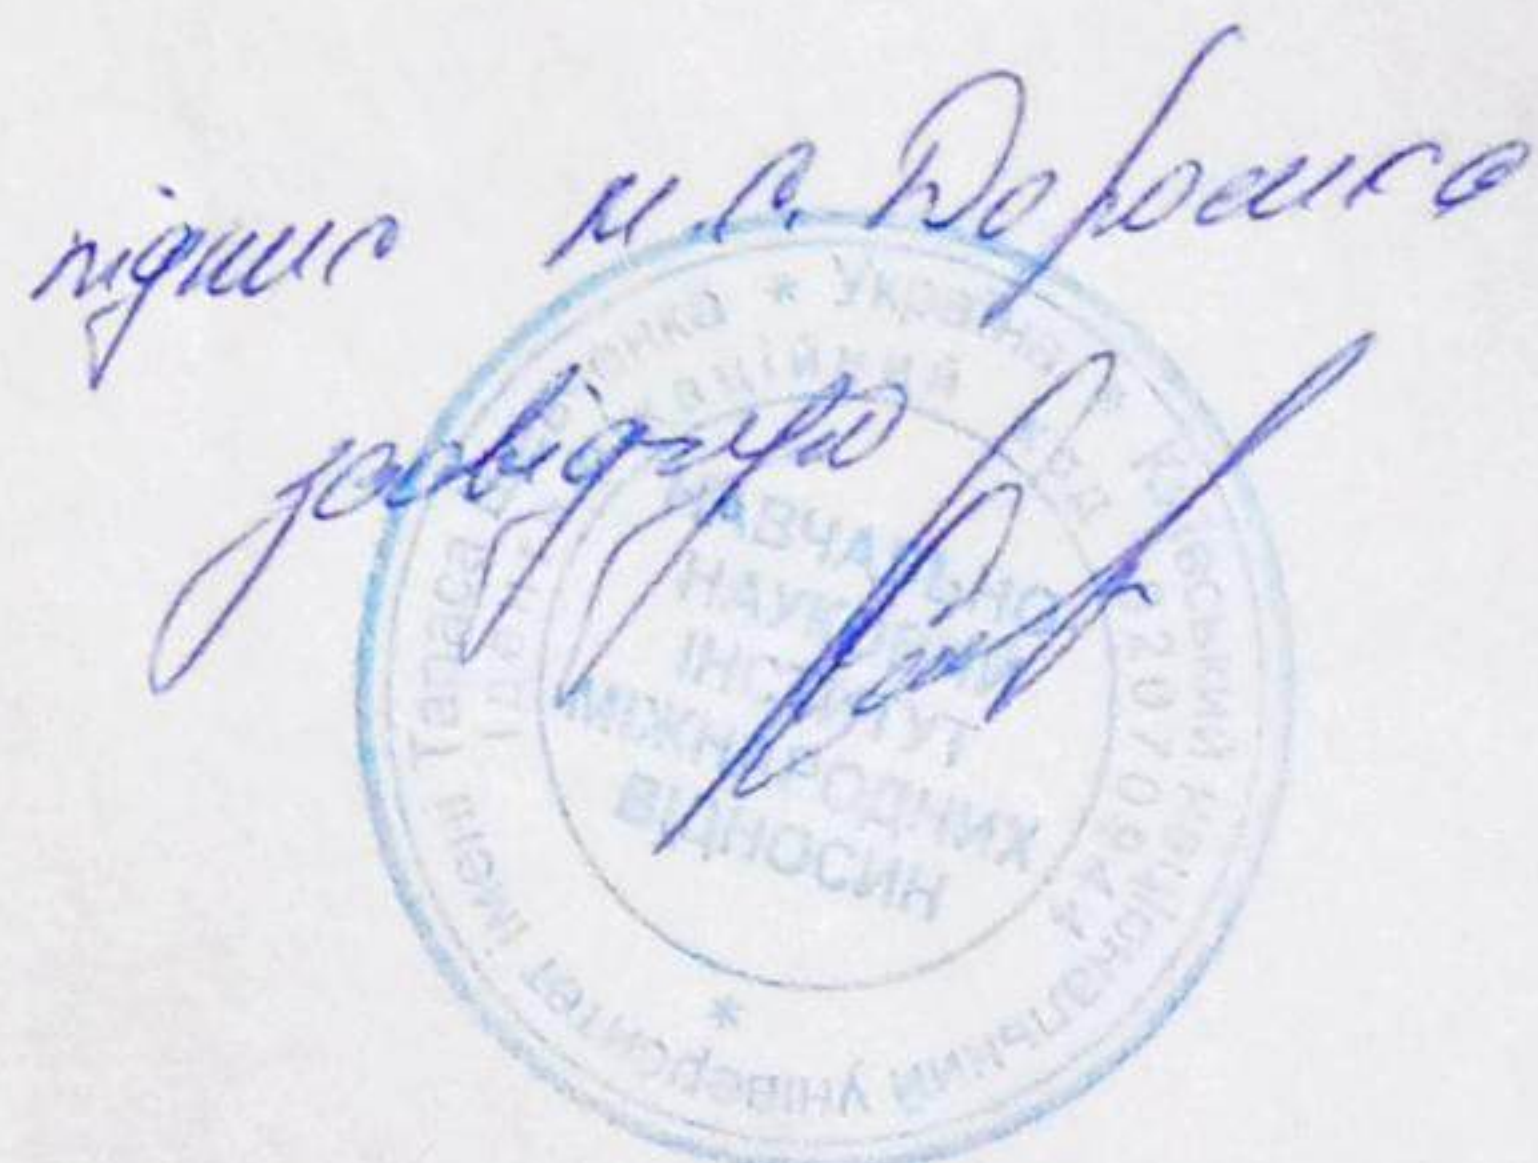 підпис М.С. Дорошко
засвідчую
* Україна * Київський національний університет імені Тараса Шевченка
Ідентифікаційний код 02070944
НАВЧАЛЬНО
НАУКОВИЙ
ІНСТИТУТ
МІЖНАРОДНИХ
ВІДНОСИН
*